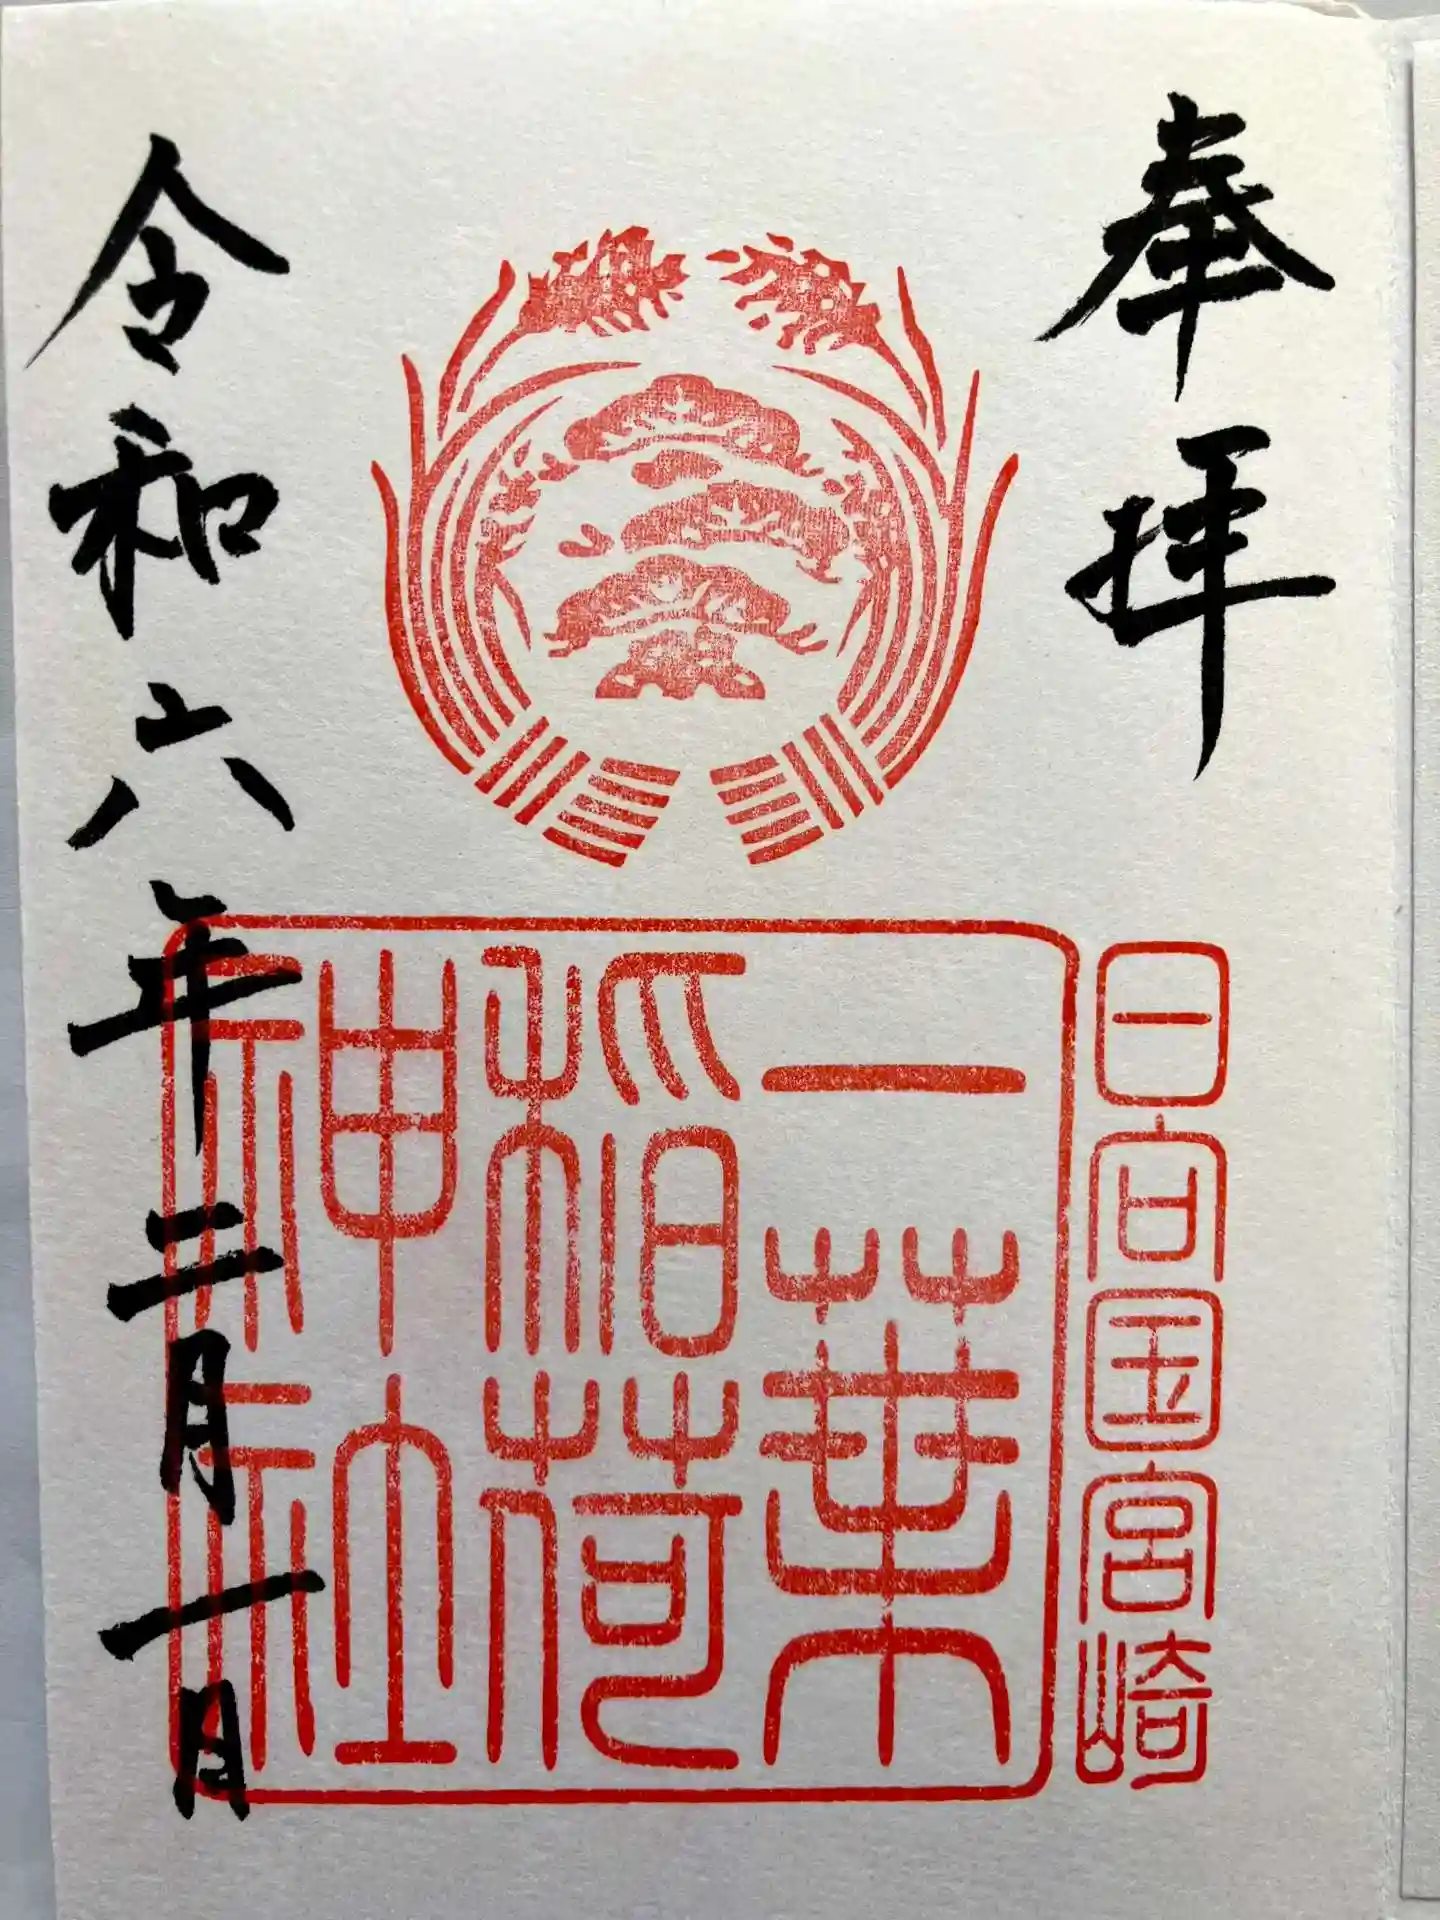 奉拝
日向国宮崎
一葉
稲荷
神社
令和六年二月一日